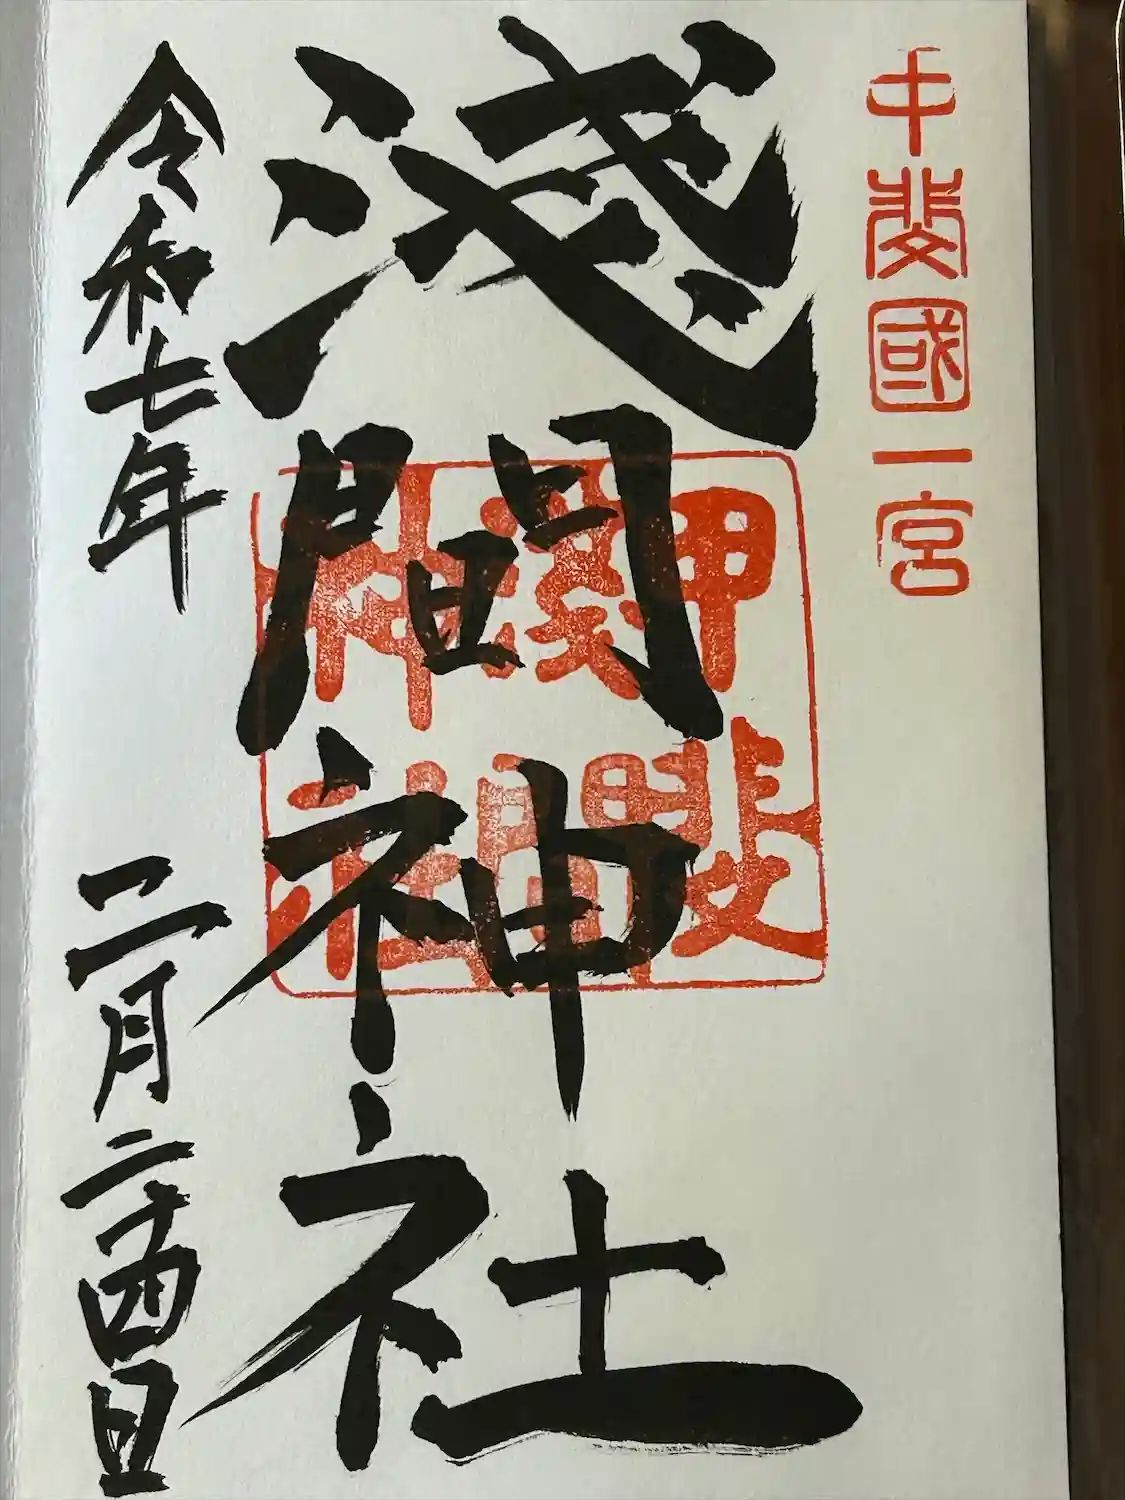 甲斐國一宮
淺間神社
甲斐
淺間
神社
令和七年二月二十四日